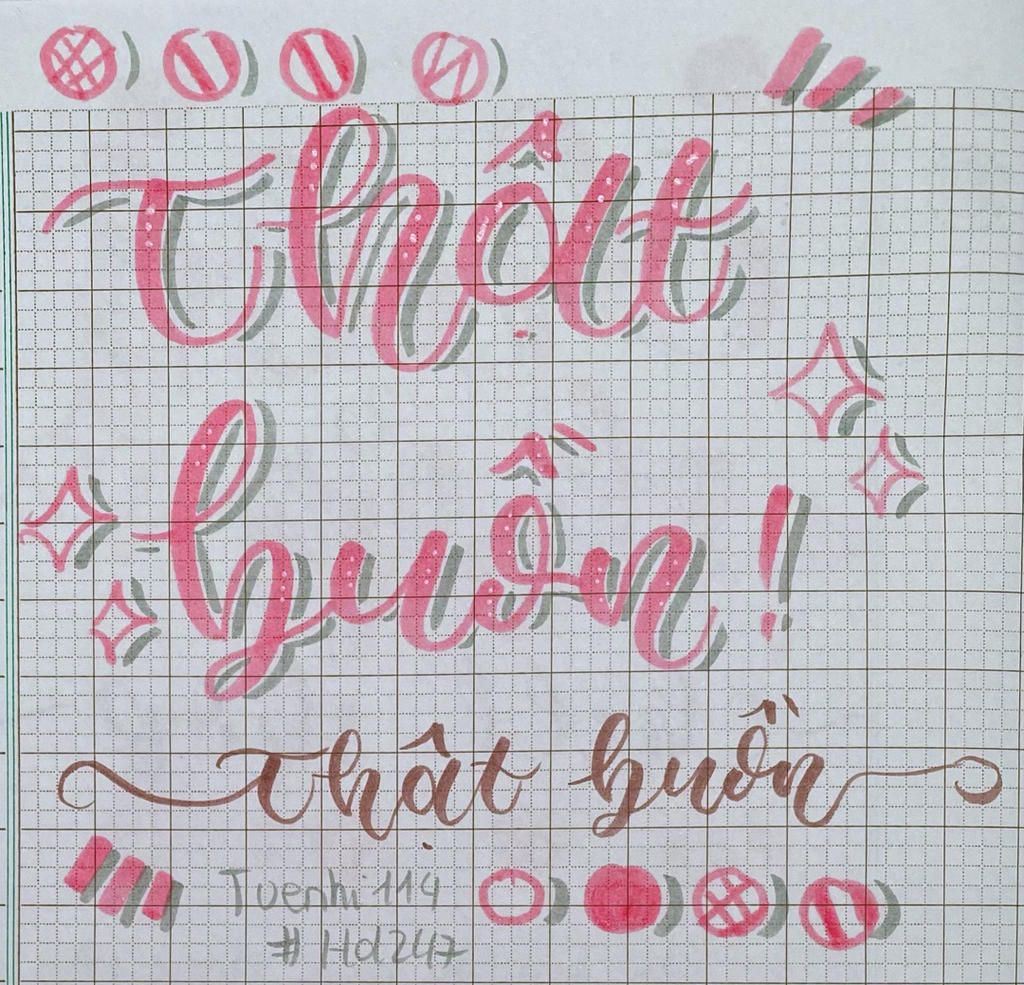 Thật
buồn!
Thật buồn
Tuenhi114
#Hd247